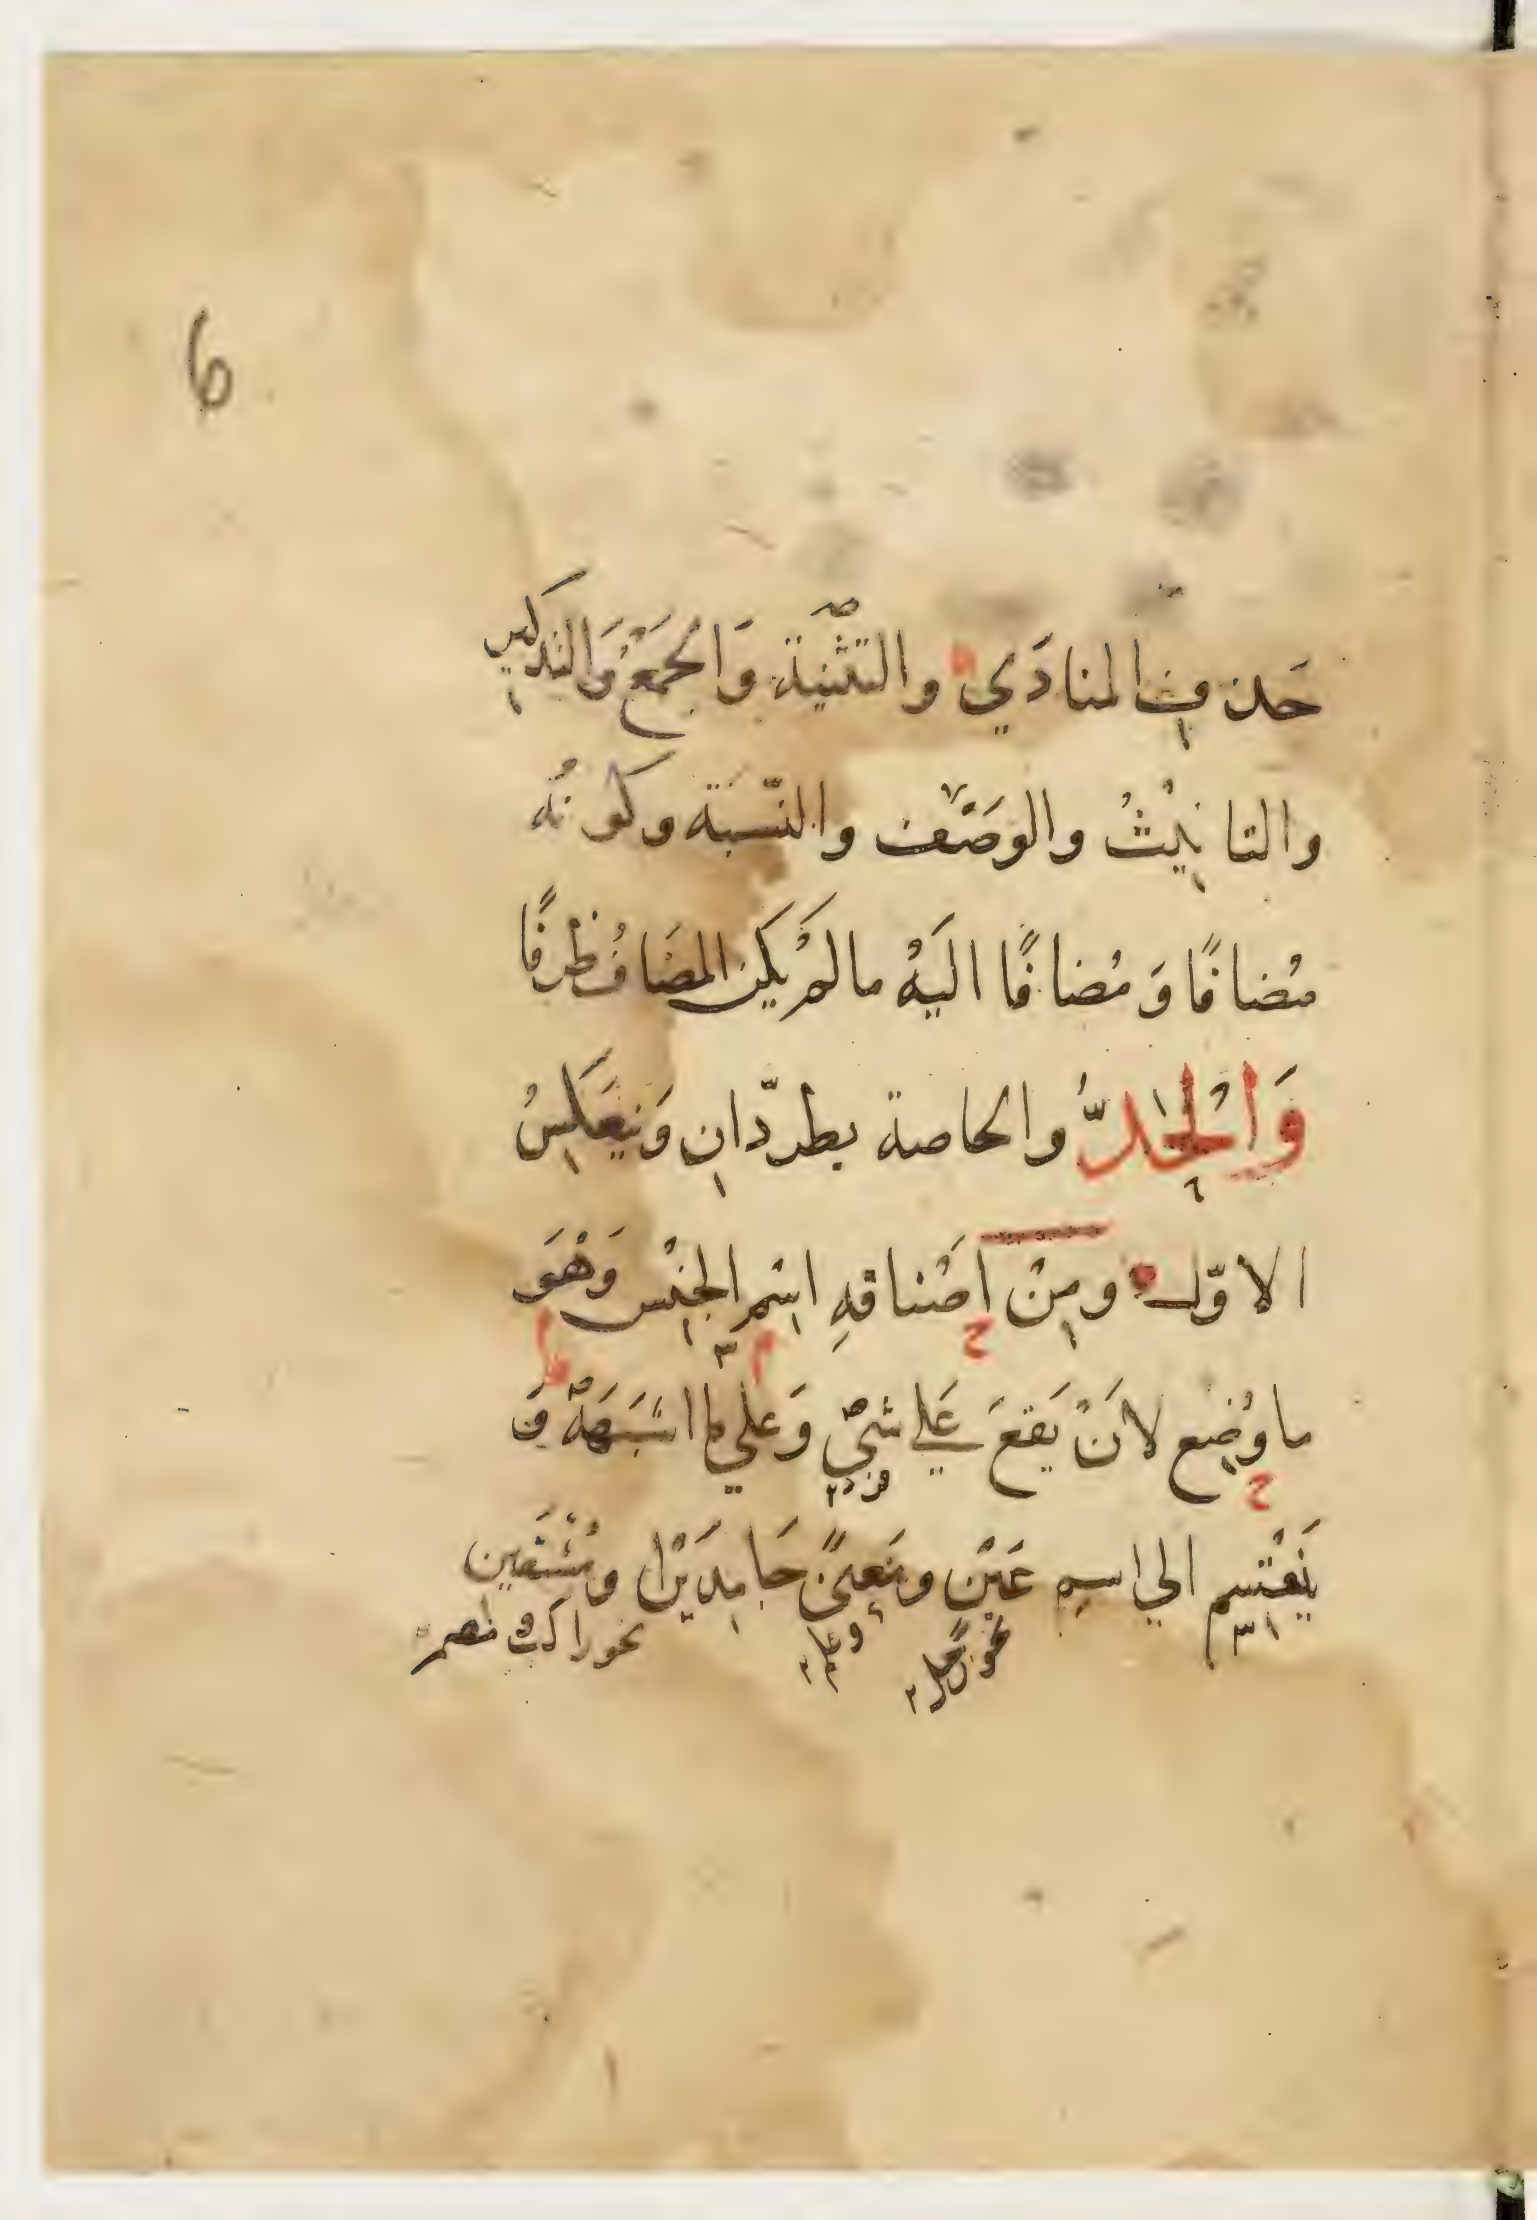 6
حَذف المنادَي والتثنّية وَالجَمَعْ وَالتذكير
والتانِيْثُ والوَصَف والنّسبَة وكونُه
مُضافًا وَمُضافًا اليَهْ مالمَرْيكن المضَافُ ظرفًا
وَالْحدُّ والخاصة يطردّانِ وَيَنعَكسُ
الاوّل ومِنْ اَصْنافِهِ اسْم الجِنْس وَهْوَ
ماوُضِع لاَنْ يَقعَ عَلي شيْئٍ وَعلي ما اشَبَههْ وَ
يَنْقسِم الي اسمِ عَيْنٍ ومَعنًي جَامِدَيْن ومُشْتَقَين
نحو رجل ٢
وعلم ٢
نحو راكب